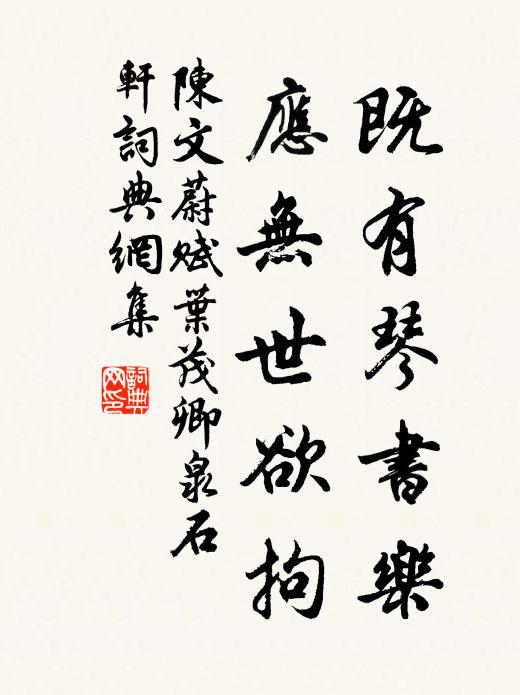 既有琴書樂
應無世欲拘
陳文蔚賦葉茂卿泉石
軒詞典網集
詞典网印